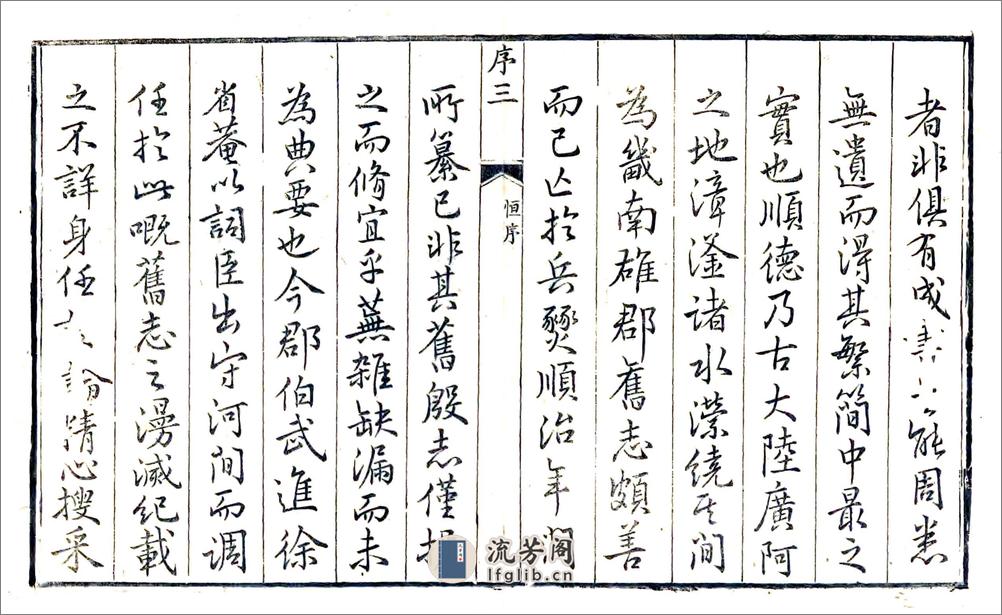 者非俱有成能周悉
無遺而得其繁簡中最之
實也順德乃古大陸廣阿
之地漳滏諸水瀠繞其間
為畿南雄郡舊志頗善
而已亡於兵燹順治年間
序三
恒序
所纂已非其舊殷志僅
之而脩宜乎蕪雜缺漏而未
為典要也今郡伯武進徐
省菴以詞臣出守河間而調
任於此嘅舊志之漫滅紀載
之不詳身任精心搜采
流芳阁
lfglib.cn